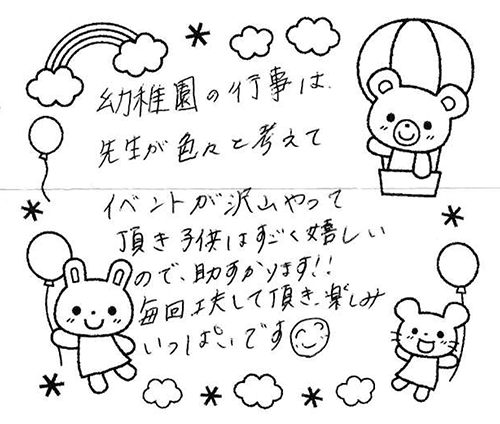 幼稚園の行事は、
先生が色々と考えて
イベントが沢山やって
頂き子供はすごく嬉しい
ので、助すかります!!
毎回工夫して頂き、楽しみ
いっぱいです